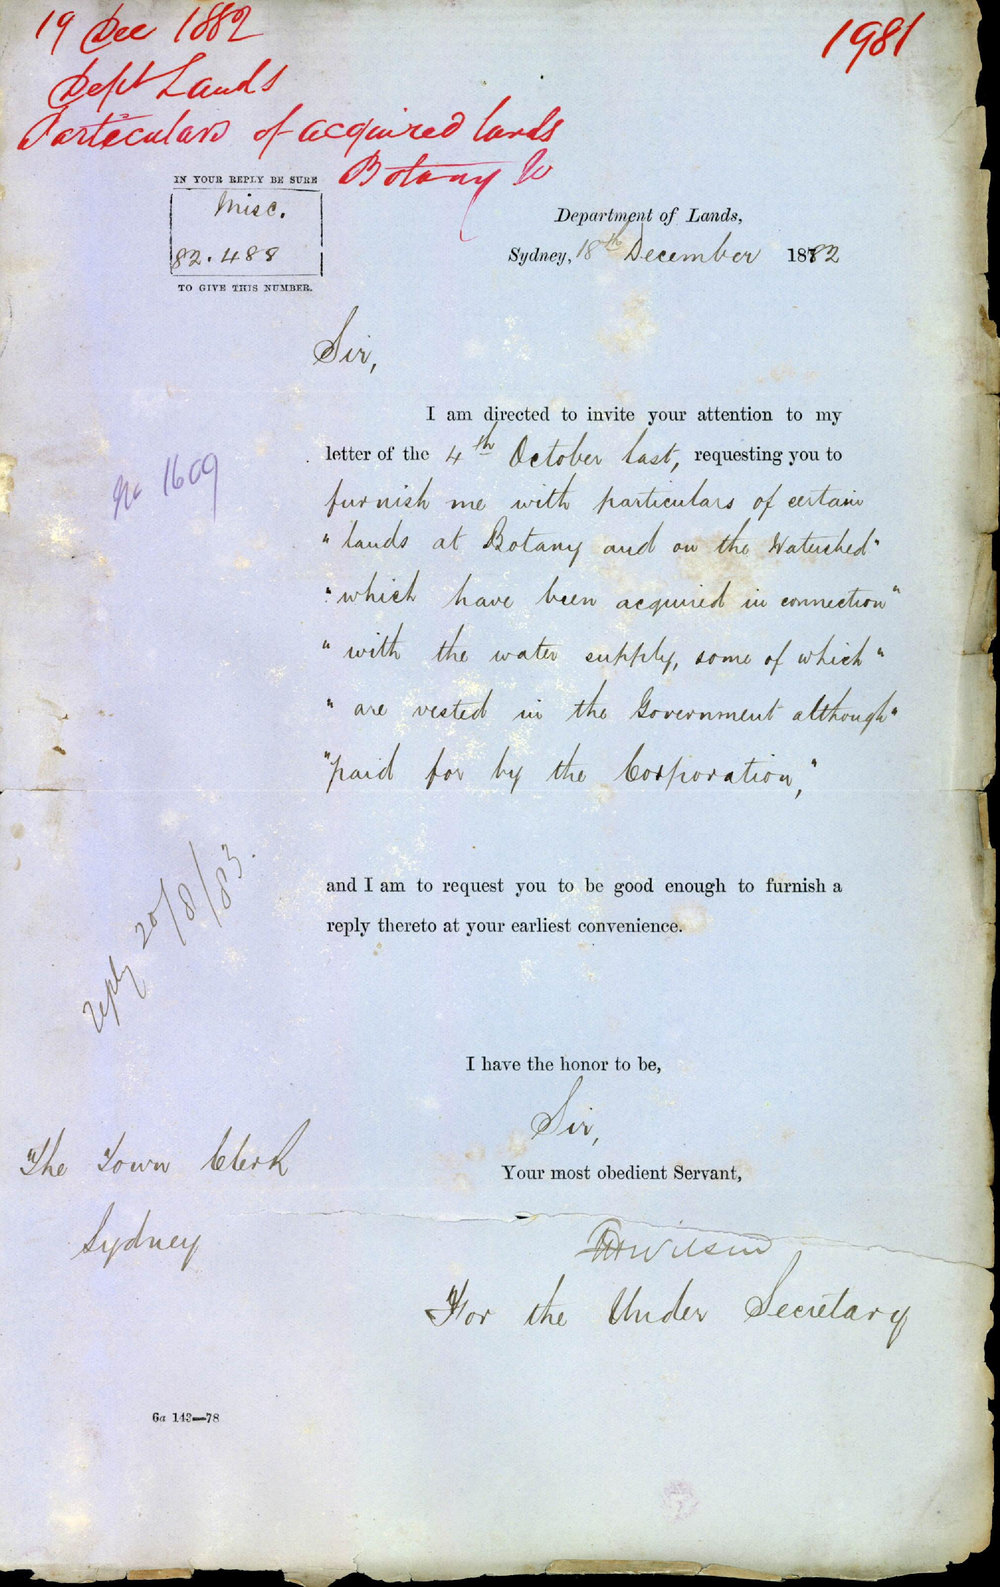 19 Dec 1882
1981
Dept Lands
Particulars of acquired lands
Botany
IN YOUR REPLY BE SURE
Misc.
82.488
TO GIVE THIS NUMBER.
Department of Lands,
Sydney, 18th December 1882
Sir,
I am directed to invite your attention to my
letter of the 4th October last, requesting you to
furnish me with particulars of certain
"lands at Botany and on the Watershed"
"which have been acquired in connection"
"with the water supply, some of which"
"are vested in the Government although"
"paid for by the Corporation,"
No 1609
and I am to request you to be good enough to furnish a
reply thereto at your earliest convenience.
reply 20/8/83.
I have the honor to be,
Sir,
Your most obedient Servant,
Wilson
For the Under Secretary
The Town Clerk
Sydney
6a 143—78